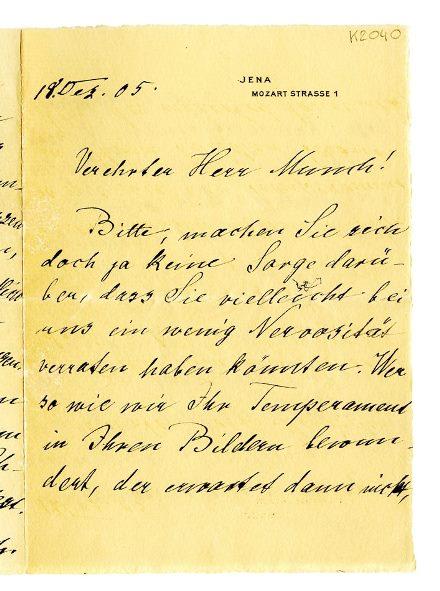 K2040
JENA
MOZART STRASSE 1
18. Dez. 05.
Verehrter Herr Munch!
Bitte, machen Sie sich
doch ja keine Sorge darü-
ber, dass Sie vielleicht bei
uns ein wenig Nervosität
verraten haben könnten. Wer
so wie wir Ihr Temperament
in Ihren Bildern bewun-
dert, der erwartet dann nicht,